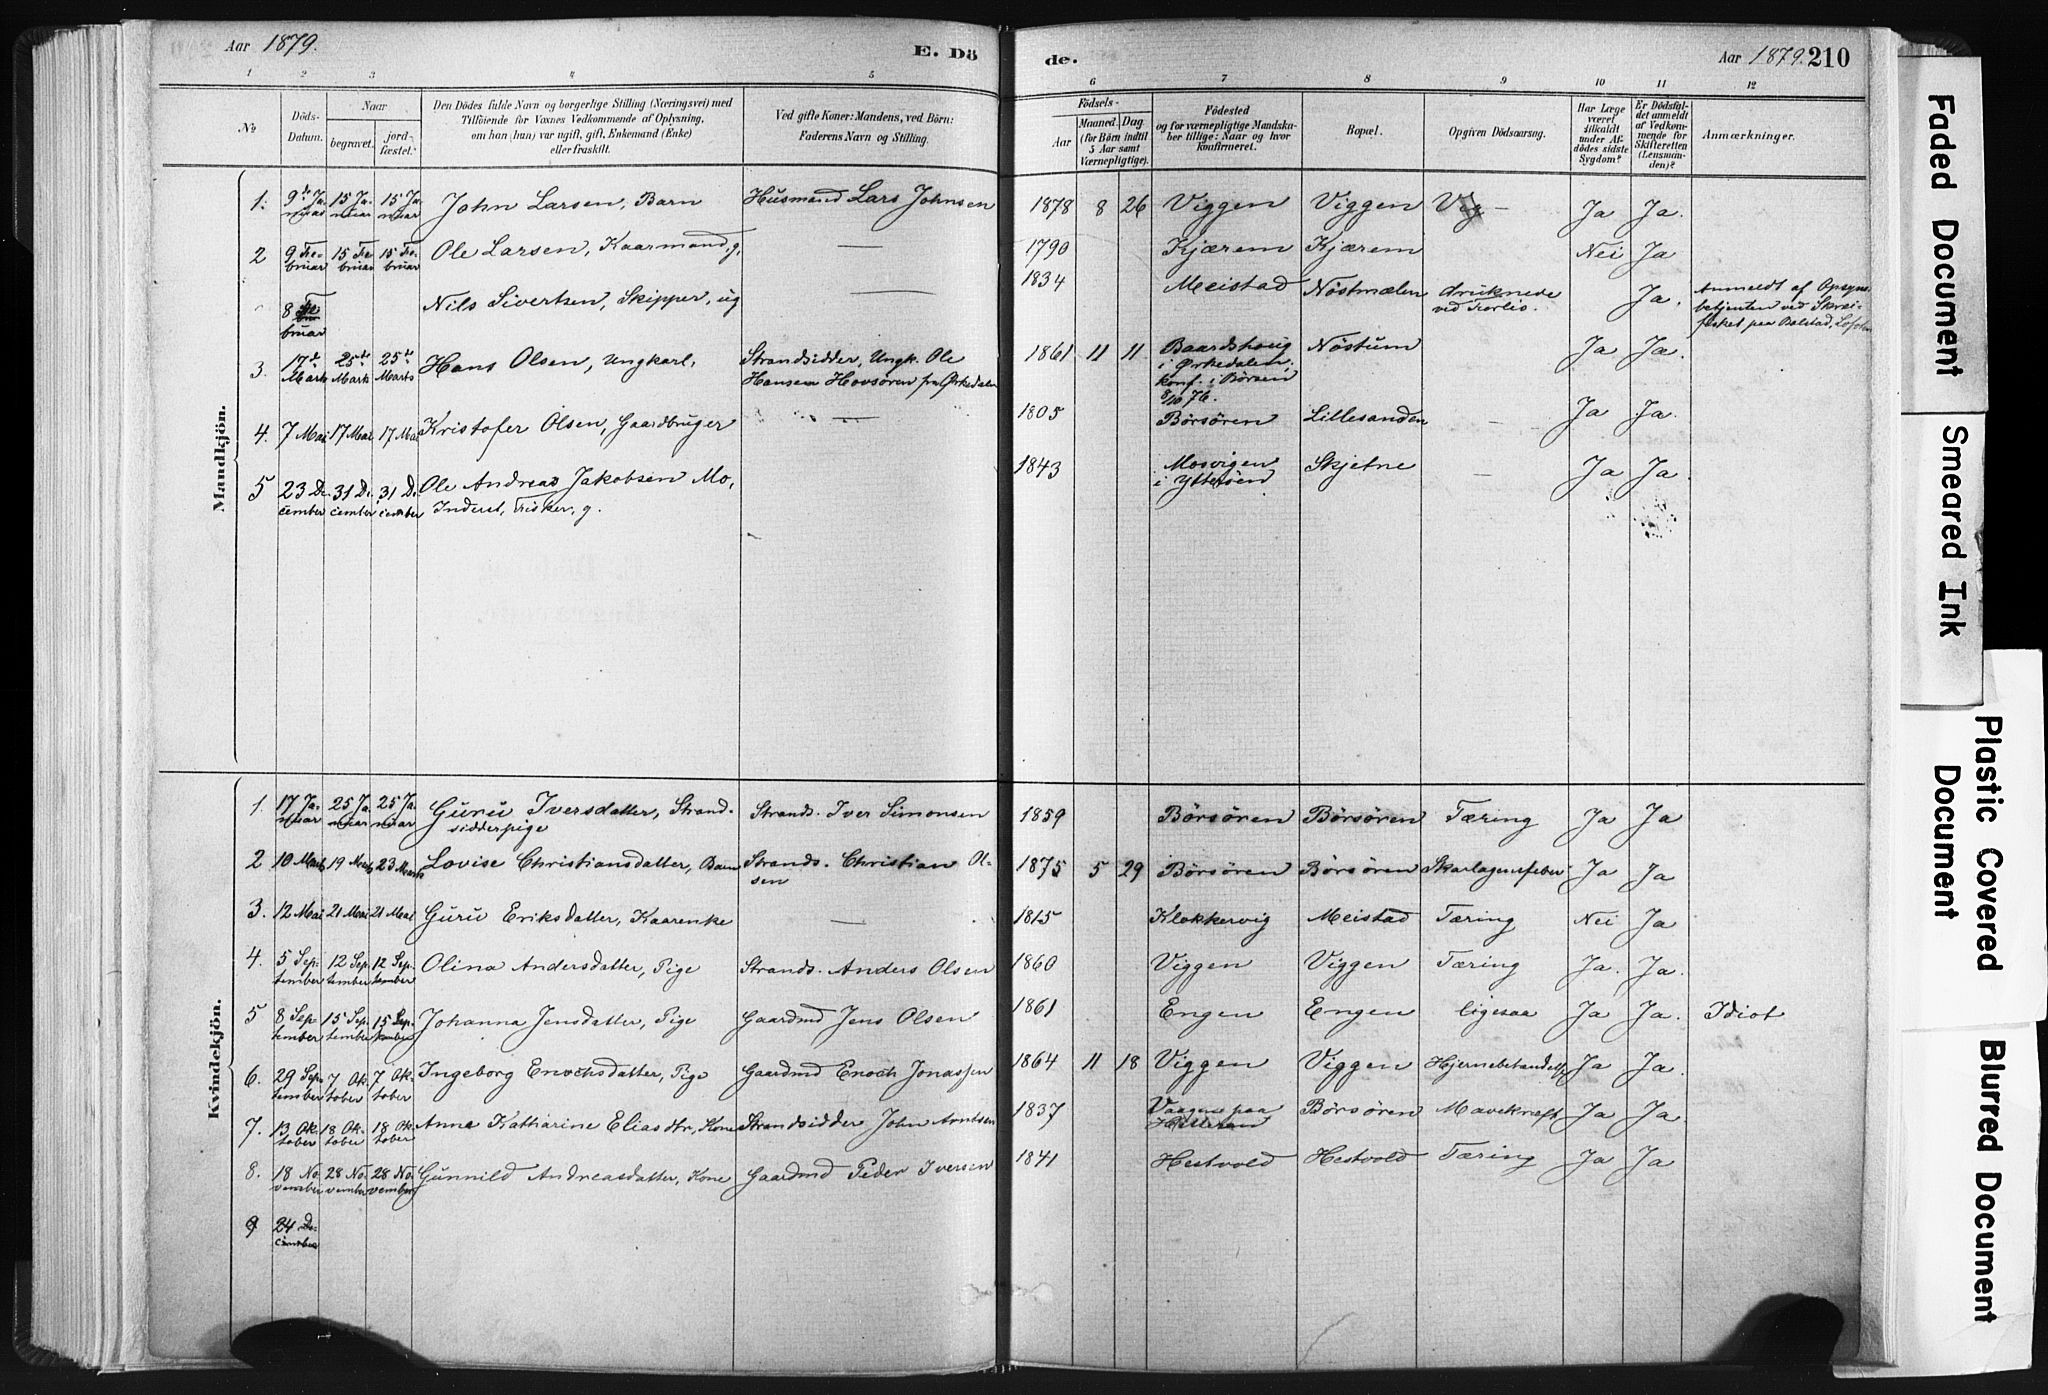 Aar 1879.
E. Dö
de.
Aar 1879. 210
1 2 3 4 5 6 7 8 9 10 11 12
No
Döds-Datum.
Naar
begravet.
jord-fæstet.
Den Dödes fulde Navn og borgerlige Stilling (Næringsvei) med
Tilföiende for Voxnes Vedkommende af Oplysning,
om han (hun) var ugift, gift, Enkemand (Enke)
eller fraskilt.
Ved gifte Koner: Mandens, ved Börn:
Faderens Navn og Stilling.
Födsels-
Aar
Maaned. Dag.
(for Börn indtil
5 Aar samt
Værnepligtige).
Födested
og for værnepligtige Mandska-
ber tillige: Naar og hvor
konfirmeret.
Bopæl.
Opgiven Dödsaarsag.
Har Læge
været
tilkaldt
under Af-
dödes sidste
Sygdom?
Er Dödsfal-
det anmeldt
af Vedkom-
mende for
Skifteretten
(Lensman-
den)?
Anmærkninger.
Mandkjön.
1. 9de Januar 15 Januar 15 Januar John Larsen, Barn Husmand Lars Johnsen 1878 8 26 Viggen Viggen – Ja Ja.
2 9 Februar 15 Februar 15 Februar Ole Larsen, Kaarmand, g. — 1790 Kjærem Kjærem Nei Ja
8 Februar Nils Sivertsen, Skipper, ug — 1834 Meistad Nöstmælen druknede
ved Forlis. Ja. Anmeldt af Opsyns-
betjenten ved Skrei-
fisket paa Balstad, Lofoten
3. 17de Marts 25de Marts 25de Marts Hans Olsen, Ungkarl, Strandsidder, Ungk. Ole
Hansen Hovsören fra Ørkedalen 1861 11 11 Baardshoug
i Ørkedalen,
konf. i Börsen
8/10 76. Nöstum Ja Ja.
4. 7 Mai 17 Mai 17 Mai Kristofer Olsen, Gaardbruger — 1805 Börsören Lillesanden – Ja Ja.
5 23 December 31 December 31 December Ole Andreas Jakobsen Mo,
Inderst, Fisker, g. 1843 Mosvigen
i Ytterøen Skjetne – Ja Ja.
Kvindekjön.
1. 17 Januar 25 Januar 25 Januar Guru Iversdatter, Strand-
sidderpige Strands. Iver Simonsen 1859 Börsören Börsören Tæring Ja Ja
2 10 Marts 19 Marts 23 Marts Lovise Christiansdatter, Barn Strands. Christian Ol-
sen 1875 5 29 Börsören Börsören Skarlagensfeber Ja Ja
3. 12 Mai 21 Mai 21 Mai Guru Eriksdatter, Kaarenke — 1815 Klokkervig Meistad Tæring Nei Ja
4. 5 September 12 September 12 September Olina Andersdatter, Pige Strands. Anders Olsen 1860 Viggen Viggen Tæring Ja. Ja.
5 8 September 15 September 15 September Johanna Jensdatter, Pige Gaardmd Jens Olsen 1861 Engen Engen ligesaa Ja Ja. Idiot
6. 29 September 7 Oktober 7 Oktober Ingeborg Enochsdatter, Pige Gaardmd Enoch Jonassen 1864 11 18 Viggen Viggen Ja Ja.
7. 13 Oktober 18 Oktober 18 Oktober Anne Katharine Eliasdtr, Kone Strandsidder John Arntsen 1837 paa
Börsören Mavekræft Ja Ja.
8. 18 November 28 November 28 November Gunnild Andreasdatter, Kone Gaardmd Peder Iversen 1841 Hestvold Hestvold Tæring Ja Ja
9 24 December
Faded Document
Smeared Ink
Plastic Covered Document
Blurred Document